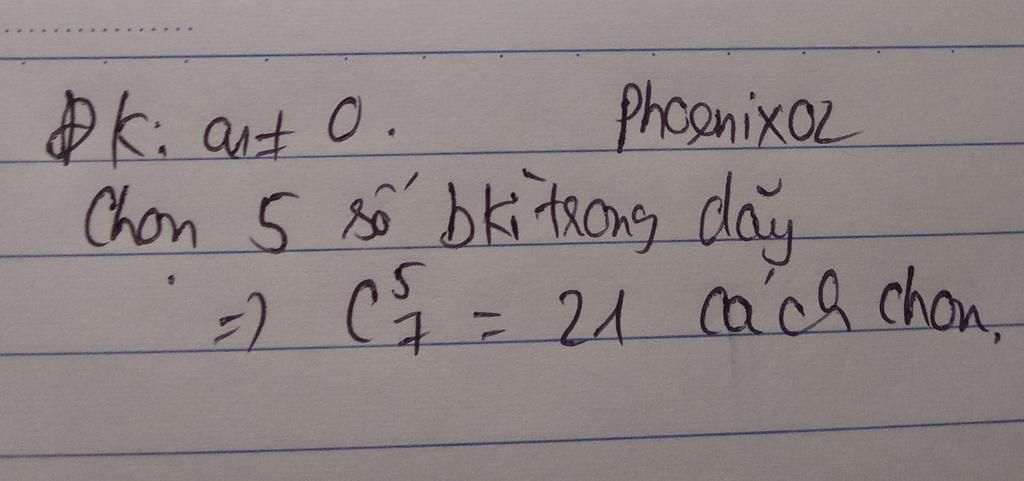 ĐK: a1 ≠ 0. Phoenix02
Chọn 5 số bkì trong dãy
=> C⁵₇ = 21 cách chọn.